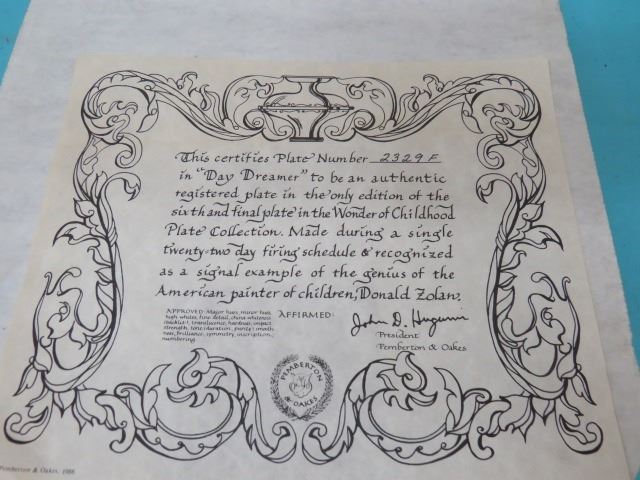 This certifies Plate Number 2329F
in "Day Dreamer" to be an authentic
registered plate in the only edition of the
sixth and final plate in the Wonder of Childhood
Plate Collection. Made during a single
twenty-two day firing schedule & recognized
as a signal example of the genius of the
American painter of children, Donald Zolan.
APPROVED: Major hues, minor hues,
high white, fine detail, china whiteness
translucence, hardness, impact
strength, tone, duration, purity, smooth-
ness, brilliance, symmetry, inscription,
numbering
AFFIRMED:
John D. Hugunin
President
Pemberton & Oakes
PEMBERTON
& OAKES
Pemberton & Oakes, 1986